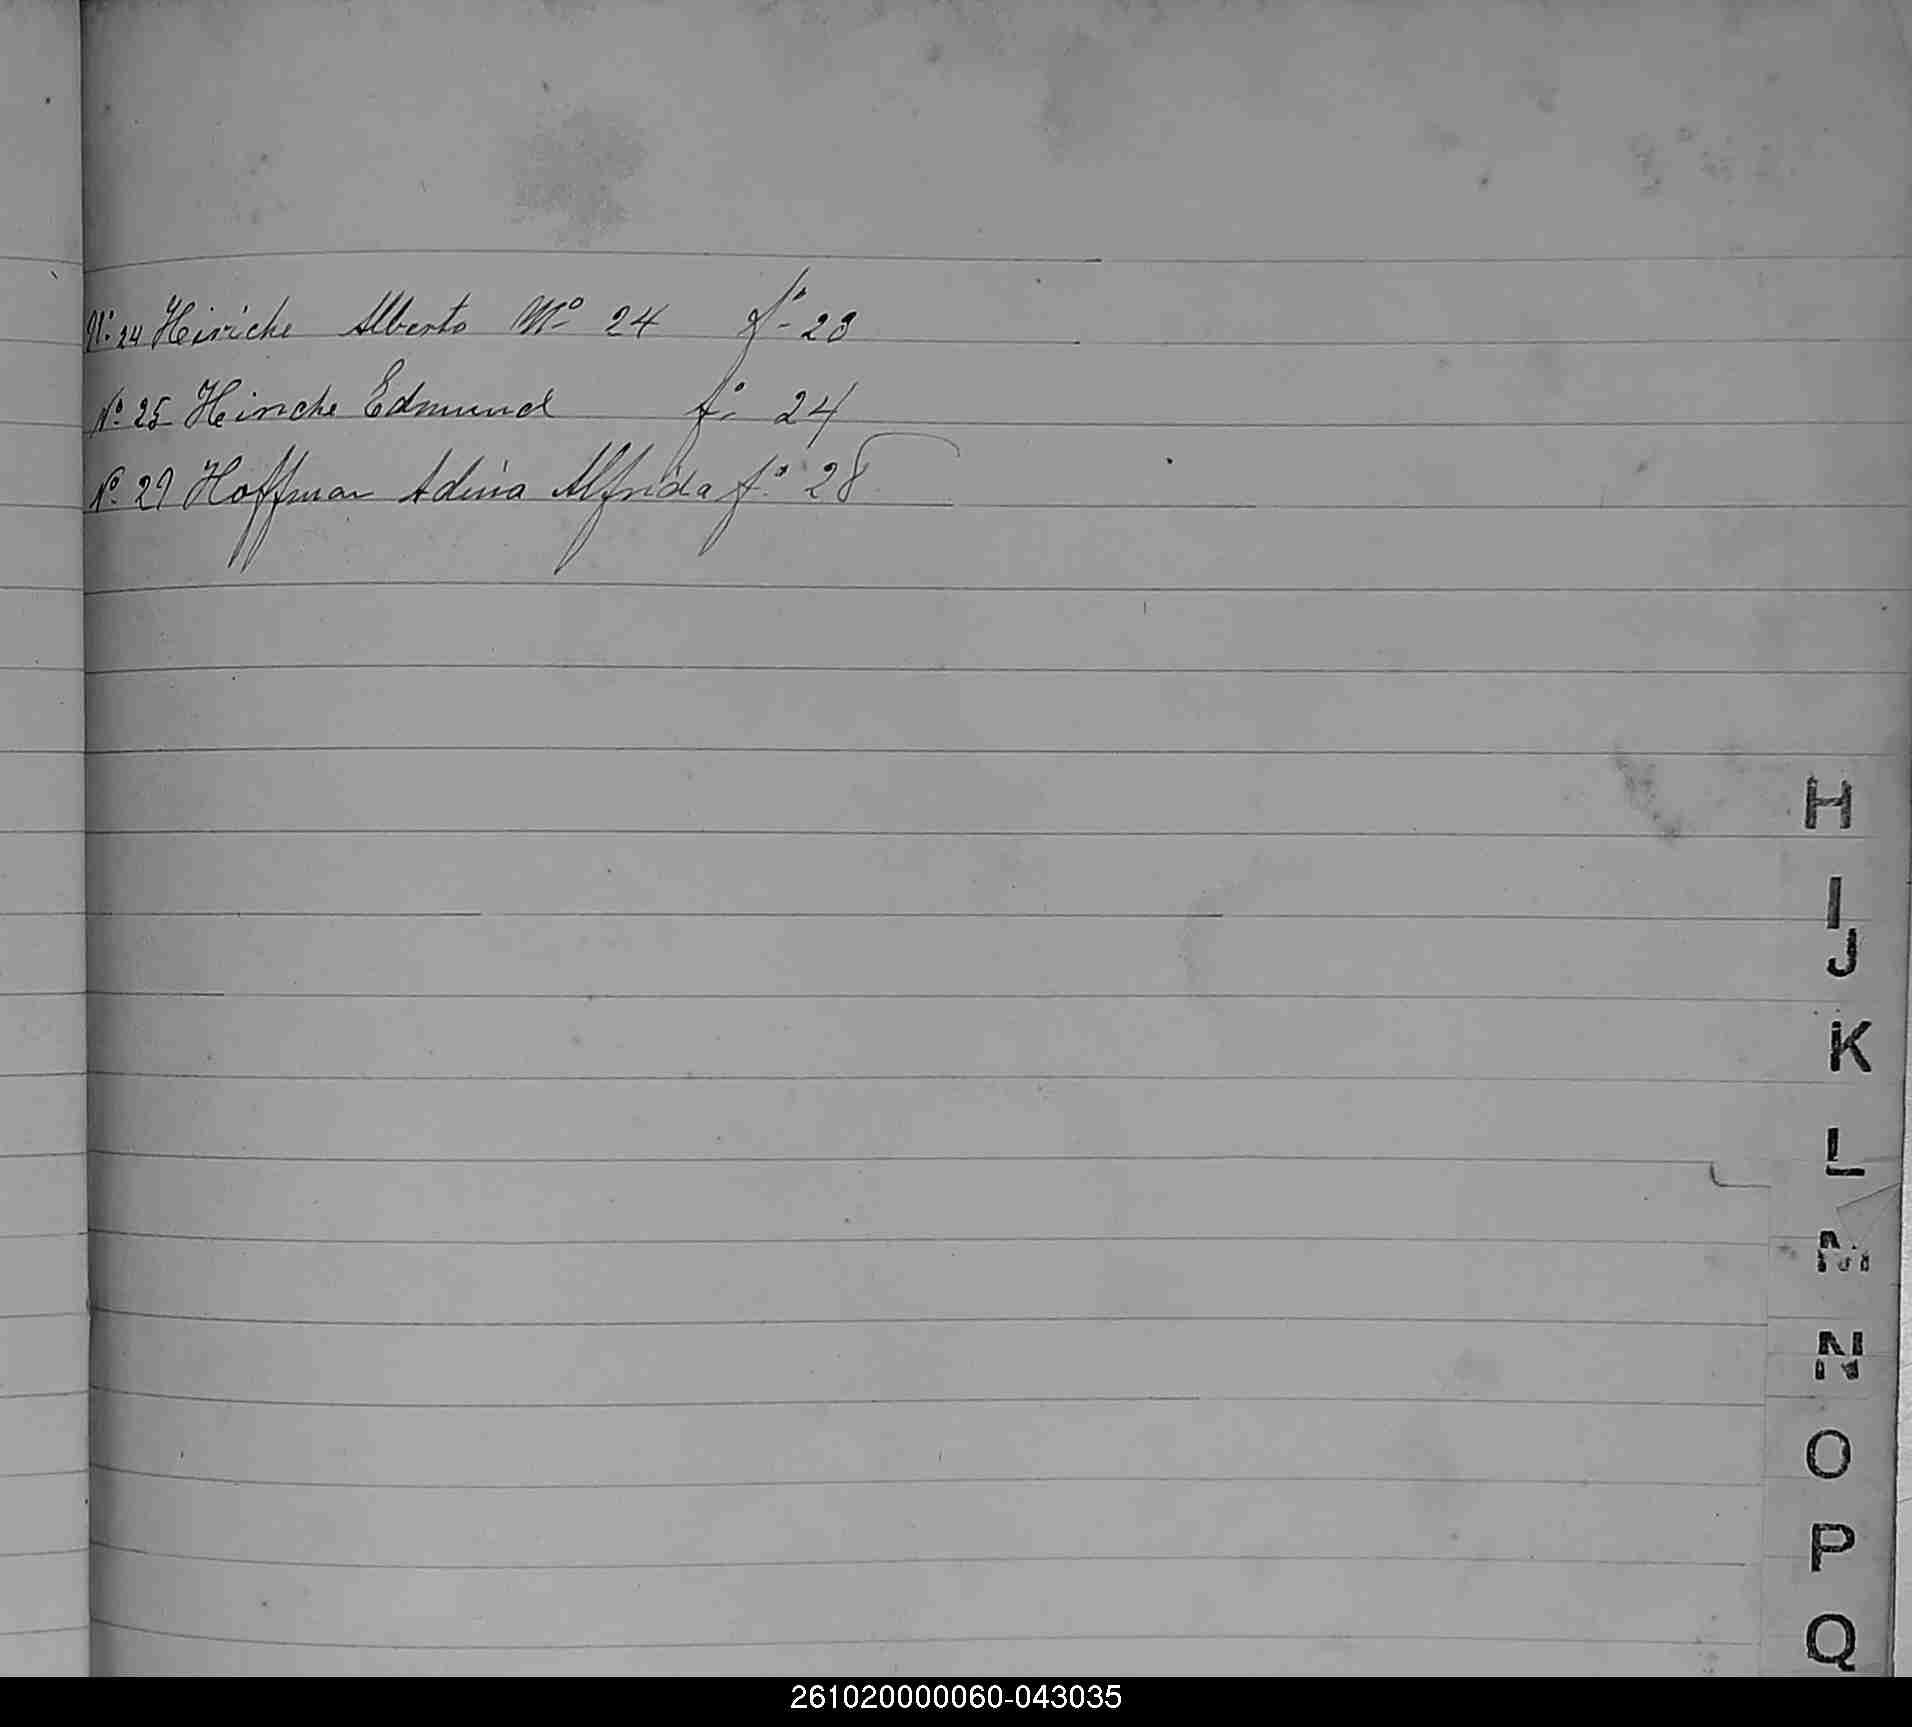 Nº 24 Heiriche Alberto Nº 24 fº 23
Nº 25 Heiriche Edmund fº 24
Nº 29 Hoffman Adina Alfrida fº 28
H
I
J
K
L
M
N
O
P
Q
261020000060-043035